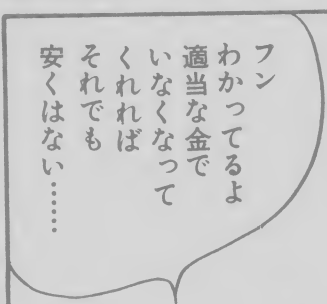 フン
わかってるよ
適当な金で
いなくなって
くれれば
それでも
安くはない……